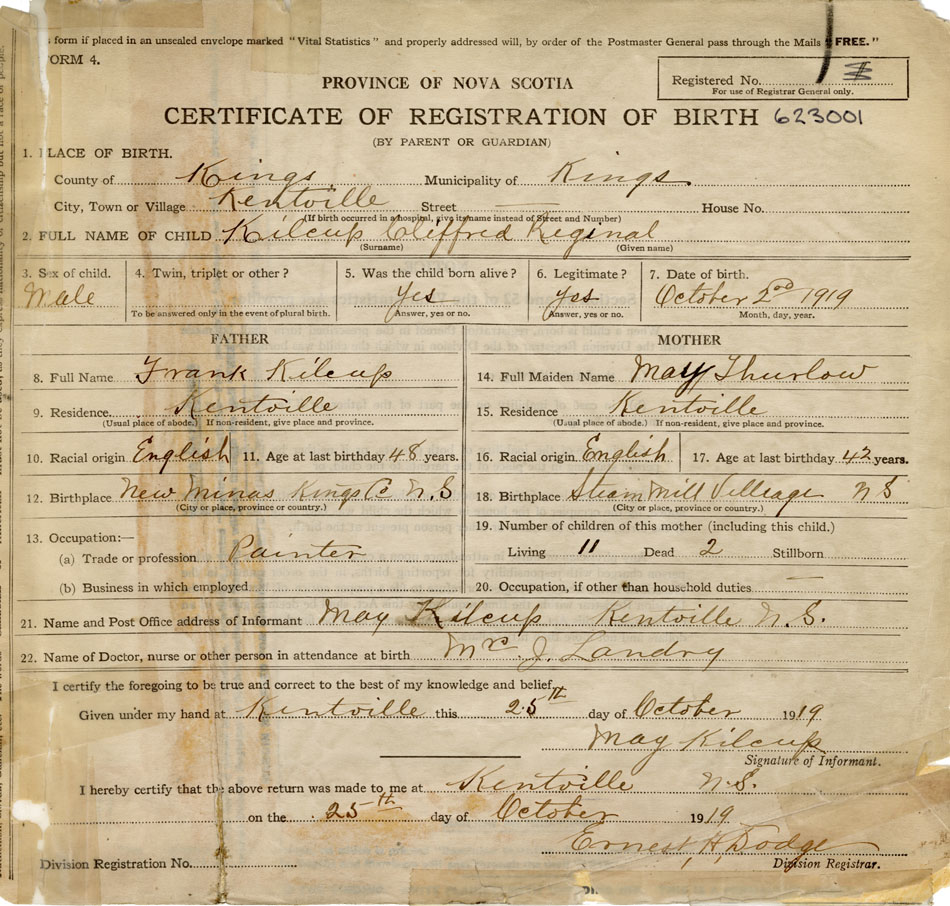 s form if placed in an unsealed envelope marked "Vital Statistics" and properly addressed will, by order of the Postmaster General pass through the Mails "FREE."
ORM 4.
Registered No.
For use of Registrar General only.
PROVINCE OF NOVA SCOTIA
CERTIFICATE OF REGISTRATION OF BIRTH 623001
(BY PARENT OR GUARDIAN)
1. PLACE OF BIRTH.
County of Kings Municipality of Kings
City, Town or Village Kentville Street House No.
(If birth occurred in a hospital, give its name instead of Street and Number)
2. FULL NAME OF CHILD Kilcup Cliffred Reginal
(Surname) (Given name)
3. Sex of child. 4. Twin, triplet or other? 5. Was the child born alive? 6. Legitimate? 7. Date of birth.
Male Yes Yes October 2nd 1919
To be answered only in the event of plural birth. Answer, yes or no. Answer, yes or no. Month, day, year.
FATHER MOTHER
8. Full Name Frank Kilcup 14. Full Maiden Name May Thurlow
9. Residence. Kentville 15. Residence Kentville
(Usual place of abode.) If non-resident, give place and province. (Usual place of abode.) If non-resident, give place and province.
10. Racial origin English 11. Age at last birthday 48 years. 16. Racial origin English 17. Age at last birthday 42 years.
12. Birthplace New Minas Kings Co N.S 18. Birthplace Steam Mill Villeage N S
(City or place, province or country.) (City or place, province or country.)
13. Occupation:— 19. Number of children of this mother (including this child.)
(a) Trade or profession Painter Living 11 Dead 2 Stillborn
(b) Business in which employed 20. Occupation, if other than household duties.
21. Name and Post Office address of Informant May Kilcup Kentville N.S.
22. Name of Doctor, nurse or other person in attendance at birth Mrs. J. Landry
I certify the foregoing to be true and correct to the best of my knowledge and belief.
Given under my hand at Kentville this 25th day of October 1919
May Kilcup
Signature of Informant.
I hereby certify that the above return was made to me at Kentville N.S.
on the 25th day of October 1919
Ernest H. Dodge
Division Registration No. Division Registrar.